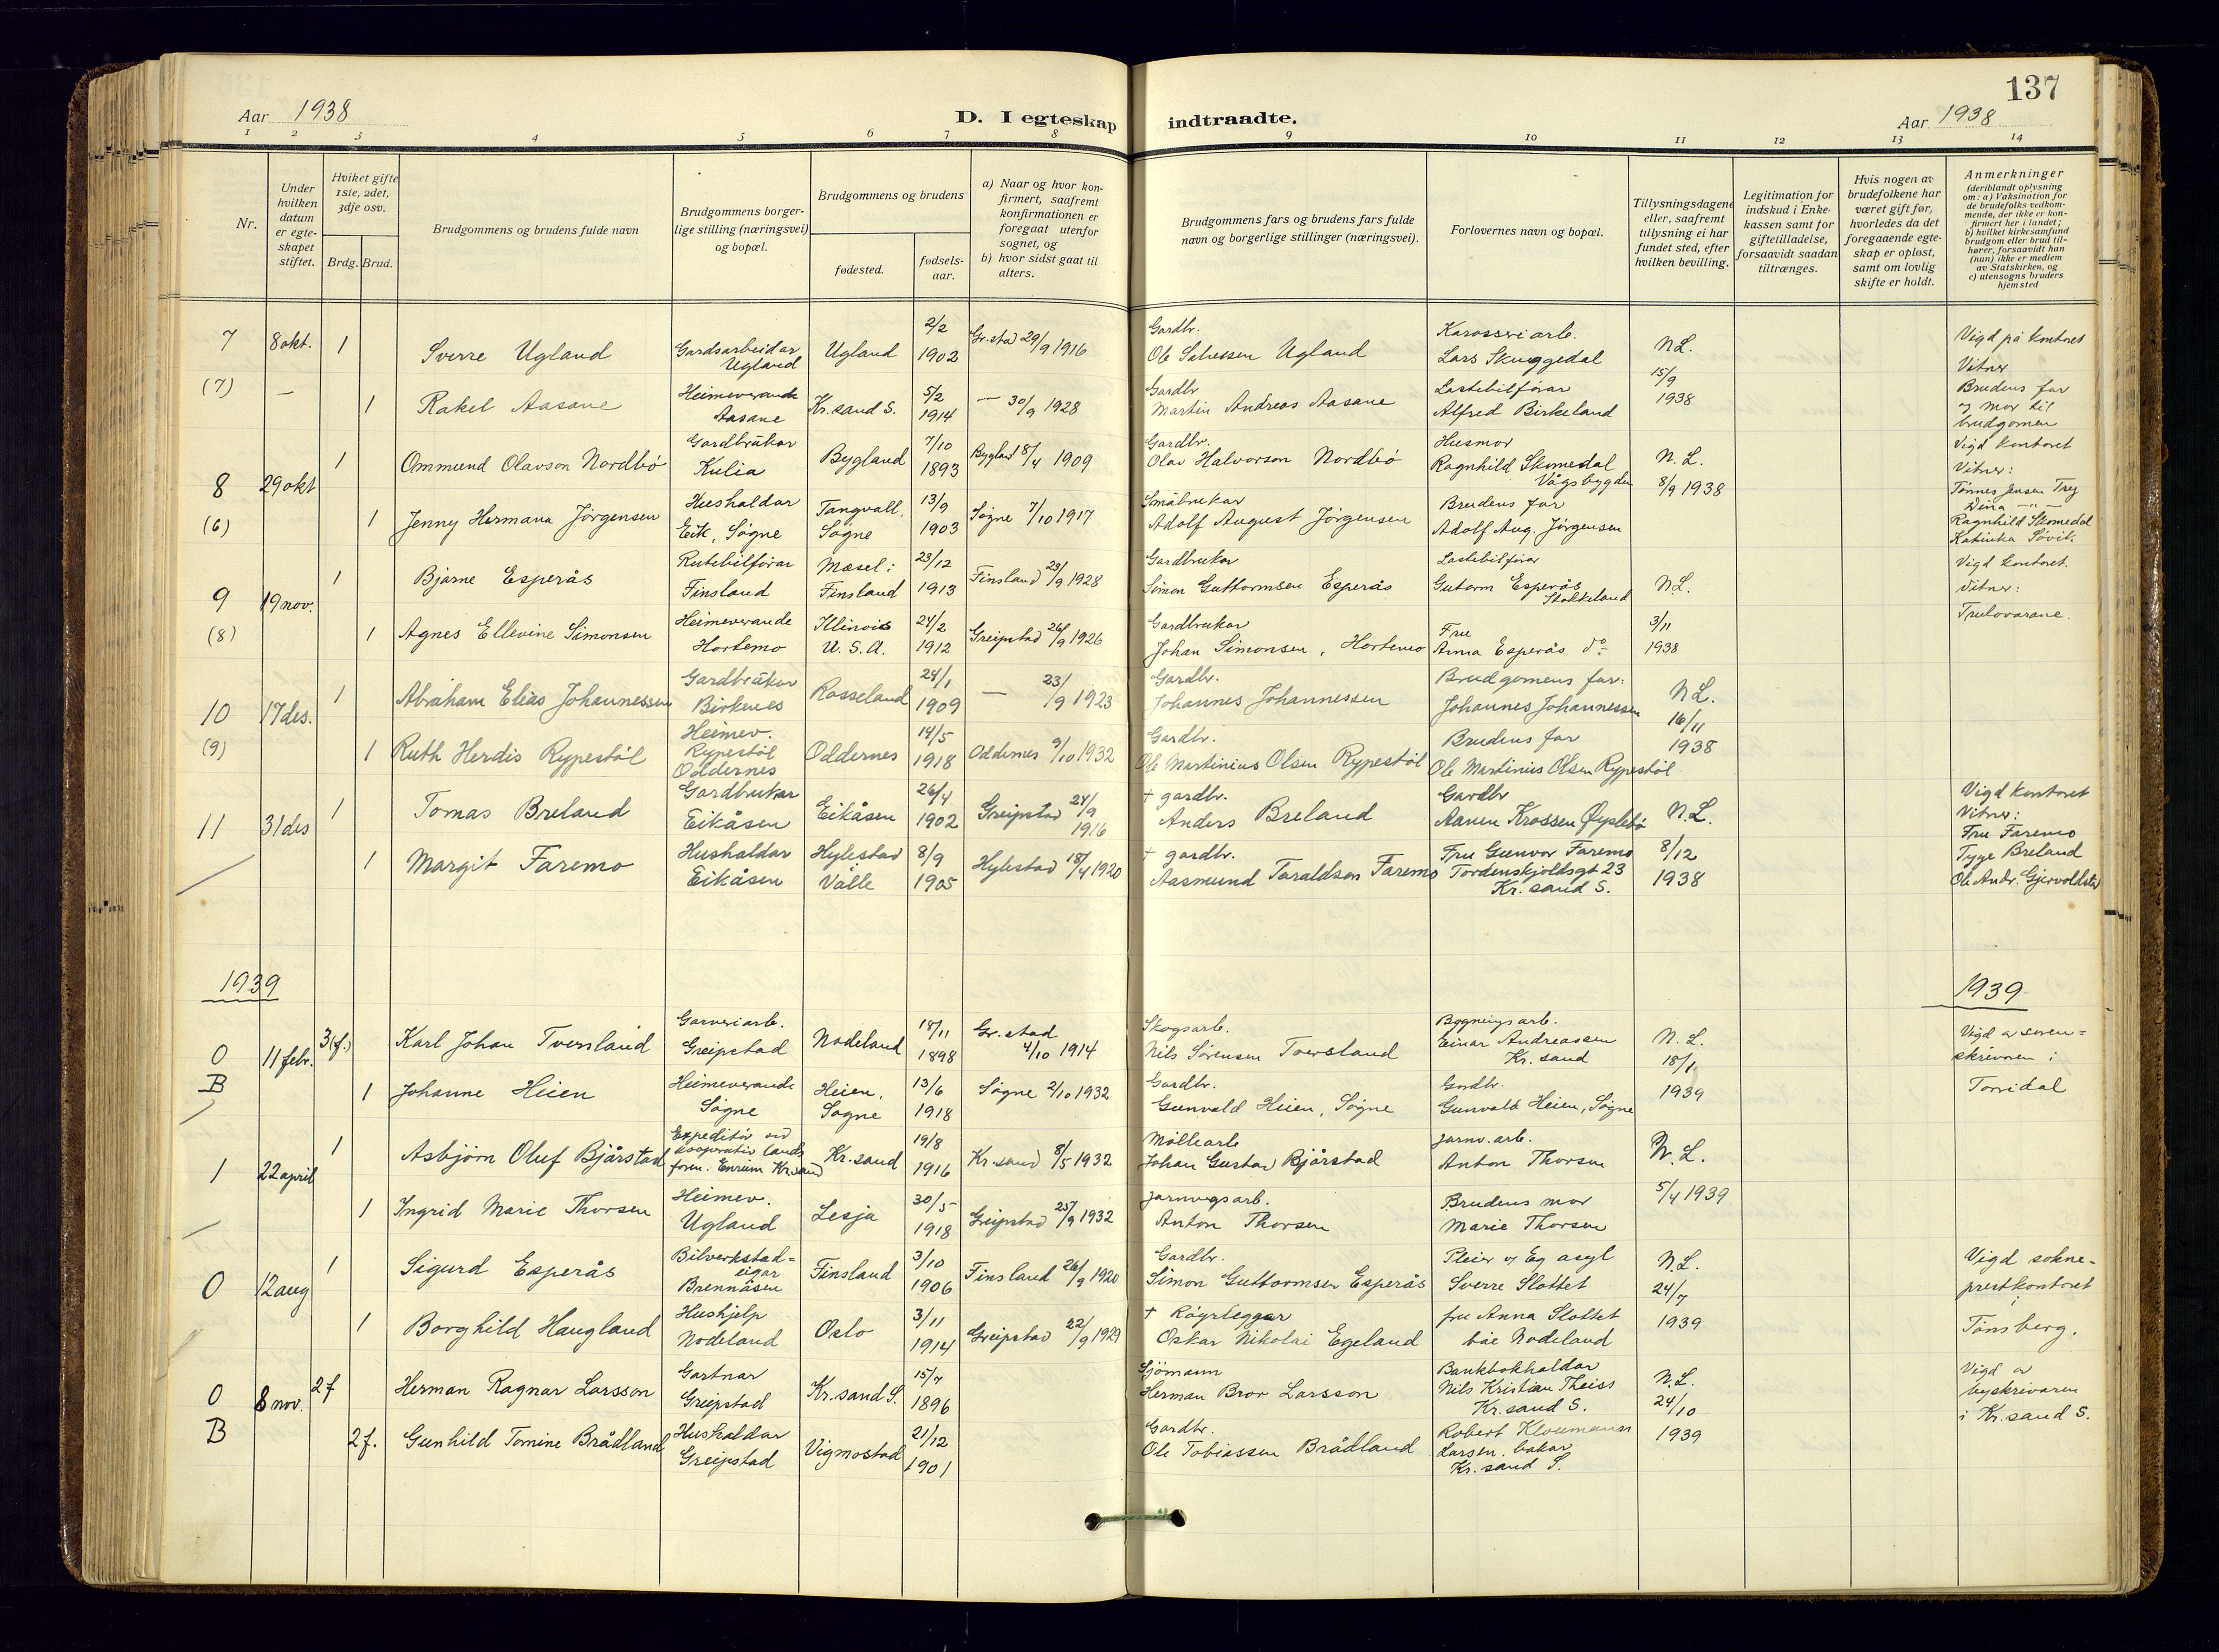 137
Aar 1938
D. I egteskap indtraadte.
Aar 1938
1 2 3 4 5 6 7 8 9 10 11 12 13 14
Nr.
Under hvilken datum er egte-skapet stiftet.
Hviket gifte 1ste, 2det, 3dje osv.
Brdg. Brud.
Brudgommens og brudens fulde navn
Brudgommens borger-lige stilling (næringsvei) og bopæl.
Brudgommens og brudens
fødested.
fødsels-aar.
a) Naar og hvor kon-firmert, saafremt konfirmationen er foregaat utenfor sognet, og
b) hvor sidst gaat til alters.
Brudgommens fars og brudens fars fulde navn og borgerlige stillinger (næringsvei).
Forlovernes navn og bopæl.
Tillysningsdagene eller, saafremt tillysning ei har fundet sted, efter hvilken bevilling.
Legitimation for indskud i Enke-kassen samt for giftetilladelse, forsaavidt saadan tiltrænges.
Hvis nogen av brudefolkene har været gift før, hvorledes da det foregaaende egte-skap er opløst, samt om lovlig skifte er holdt.
Anmerkninger
(deriblandt oplysning om: a) Vaksination for de brudefolks vedkom-mende, der ikke er kon-firmert her i landet; b) hvilket kirkesamfund brudgom eller brud til-hører, forsaavidt han (hun) ikke er medlem av Statskirken, og c) utensogns bruders hjemsted
7 8 okt. 1 Sverre Ugland Gardsarbeidar Ugland Ugland 2/2 1902 Gr.stad 29/9 1916 Gardbr. Ole Salvessen Ugland Karosseriarb. Lars Skuggedal N.L. 15/9 1938 Vigd på kontoret
(7) — 1 Rakel Aasane Heimeverande Aasane Kr.sand S. 5/2 1914 — 30/9 1928 Gardbr Martin Andreas Aasane Lastebilförar Alfred Birkeland Vitner Brudens far og mor til brudgomen
8 29 okt 1 Ommund Olavson Nordbö Gardbrukar Kulia Bygland 7/10 1893 Bygland 8/4 1909 Gardbr. Olav Halvorson Nordbö Husmor Ragnhild Skomedal Vågsbygden N.L. 8/9 1938 Vigd kontoret Vitner:
(6) 1 Jenny Hermana Jörgensen Hushaldar Eik, Sögne Tangvall, Sögne 13/9 1903 Sögne 7/10 1917 Småbrukar Adolf August Jörgensen Brudens far Adolf Aug. Jörgensen Tönnes Jensen Trey Dina —"— Ragnhild Skomedal Katinka Sövik
9 19 nov. 1 Bjarne Esperås Rutebilförar Finsland Mæsel i Finsland 23/12 1913 Finsland 23/9 1928 Gardbrukar Simon Guttormsen Esperås Lastebilförar Gutorm Esperås Stokkeland N.L. Vigd kontoret. Vitner:
(8) 1 Agnes Ellevine Simonsen Heimeverande Hortemo Illinois U.S.A. 24/2 1912 Greipstad 26/9 1926 Gardbrukar Johan Simonsen, Hortemo Fru Anna Esperås do 3/11 1938 Trulovarane.
10 17 des. 1 Abraham Elias Johannessen Gardbrukar Birkenes Rosseland 24/1 1909 — 23/9 1923 Gardbr. Johannes Johannessen Brudgomens far: Johannes Johannessen N.L. 16/11 1938
(9) 1 Ruth Herdis Rypestöl Heimev. Rypestöl Oddernes Oddernes 14/5 1918 Oddernes 9/10 1932 Gardbr. Ole Martinius Olsen Rypestöl Brudens far Ole Martinius Olsen Rypestöl
11 31 des 1 Tomas Breland Gardbrukar Eikåsen Eikåsen 26/4 1902 Greipstad 24/9 1916 † gardbr. Anders Breland Gardbr Aanen Krossen Öyslebö N.L. 8/12 1938 Vigd kontoret Vitner: Fru Faremo
1 Margit Faremo Hushaldar Eikåsen Hylestad Valle 8/9 1905 Hylestad 18/4 1920 † gardbr. Aasmund Taraldson Faremo Fru Gunvor Faremo Tordenskjoldsgt 23 Kr.sand S. Tyge Breland Ole Andr. Gjervoldstad
1939
1939
0 B 11 febr. 3(f.) Karl Johan Tversland Garveriarb. Greipstad Nodeland 18/11 1898 Gr.stad 4/10 1914 Skogsarb. Nils Sörensen Tversland Bygningsarb. Einar Andreassen Kr.sand N.L. 18/1 1939 Vigd av soren=skrivaren i Torridal
1 Johanne Heien Heimeverande Sögne Heien, Sögne 13/6 1918 Sögne 2/10 1932 Gardbr. Gunvald Heien, Sögne Gardbr. Gunvald Heien, Sögne
1 22 april 1 Asbjörn Oluf Bjårstad Expeditör ved kooperativ lands foren. Kr.sand Kr.sand 19/8 1916 Kr.sand 8/5 1932 Möllearb Johan Gustav Bjårstad jarnv.arb. Anton Thorsen N.L. 5/4 1939
1 Ingrid Marie Thorsen Heimev. Ugland Lesja 30/5 1918 Greipstad 25/9 1932 jarnvegsarb. Anton Thorsen Brudens mor Marie Thorsen
0 12 aug 1 Sigurd Esperås Bilverkstad=eigar Brennåsen Finsland 3/10 1906 Finsland 26/9 1920 Gardbr. Simon Guttormsen Esperås Pleier v Eg asyl Sverre Slottet N.L. 24/7 1939 Vigd sokne-prestkontoret i Tönsberg.
1 Borghild Haugland Hushjelp Nodeland Oslo 3/11 1914 Greipstad 22/9 1929 † Röyrleggar Oskar Nikolai Egeland fru Anna Slottet båe Nodeland
0 B 8 nov. 2 f Herman Ragnar Larsson Gartnar Greipstad Kr.sand S. 15/7 1896 Sjömann Herman Bror Larsson Bankbokhaldar Nils Kristian Theiss Kr.sand S. N.L. 24/10 1939 Vigd av byskrivaren i Kr.sand S.
2 f. Gunhild Tomine Brådland Hushaldar Greipstad Vigmostad 21/12 1901 Gardbr. Ole Tobiassen Brådland Robert Kloumann Larsen, bakar Kr.sand S.